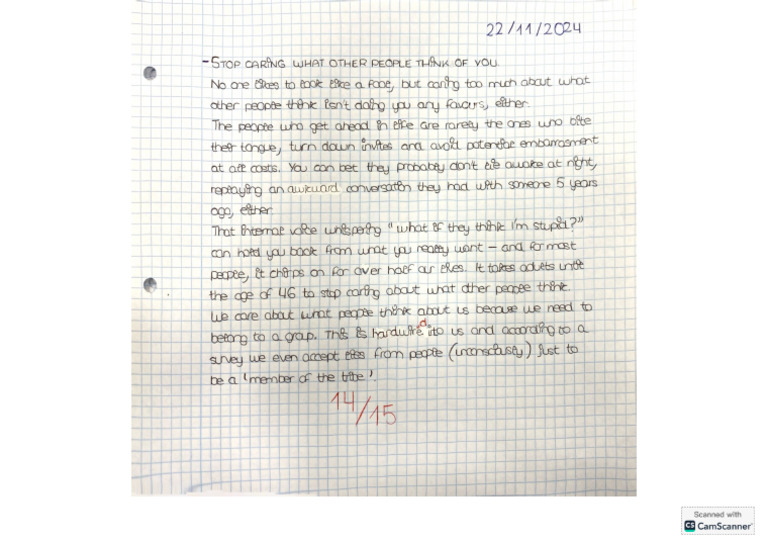 22/11/2024
- STOP CARING WHAT OTHER PEOPLE THINK OF YOU.
No one likes to look like a fool, but caring too much about what
other people think isn't doing you any favours, either.
The people who get ahead in life are rarely the ones who bite
their tongue, turn down invites and avoid potential embarrassment
at all costs. You can bet they probably don't lie awake at night,
replaying an awkward conversation they had with someone 5 years
ago, either.
That internal voice whispering "what if they think I'm stupid?"
can hold you back from what you really want - and for most
people, it chirps on for over half our lives. It takes adults until
the age of 46 to stop caring about what other people think.
We care about what people think about us because we need to
belong to a group. This is hardwired into us and according to a
survey we even accept lies from people (unconsciously) just to
be a 'member of the tribe'.
14/15
Scanned with
CS CamScanner